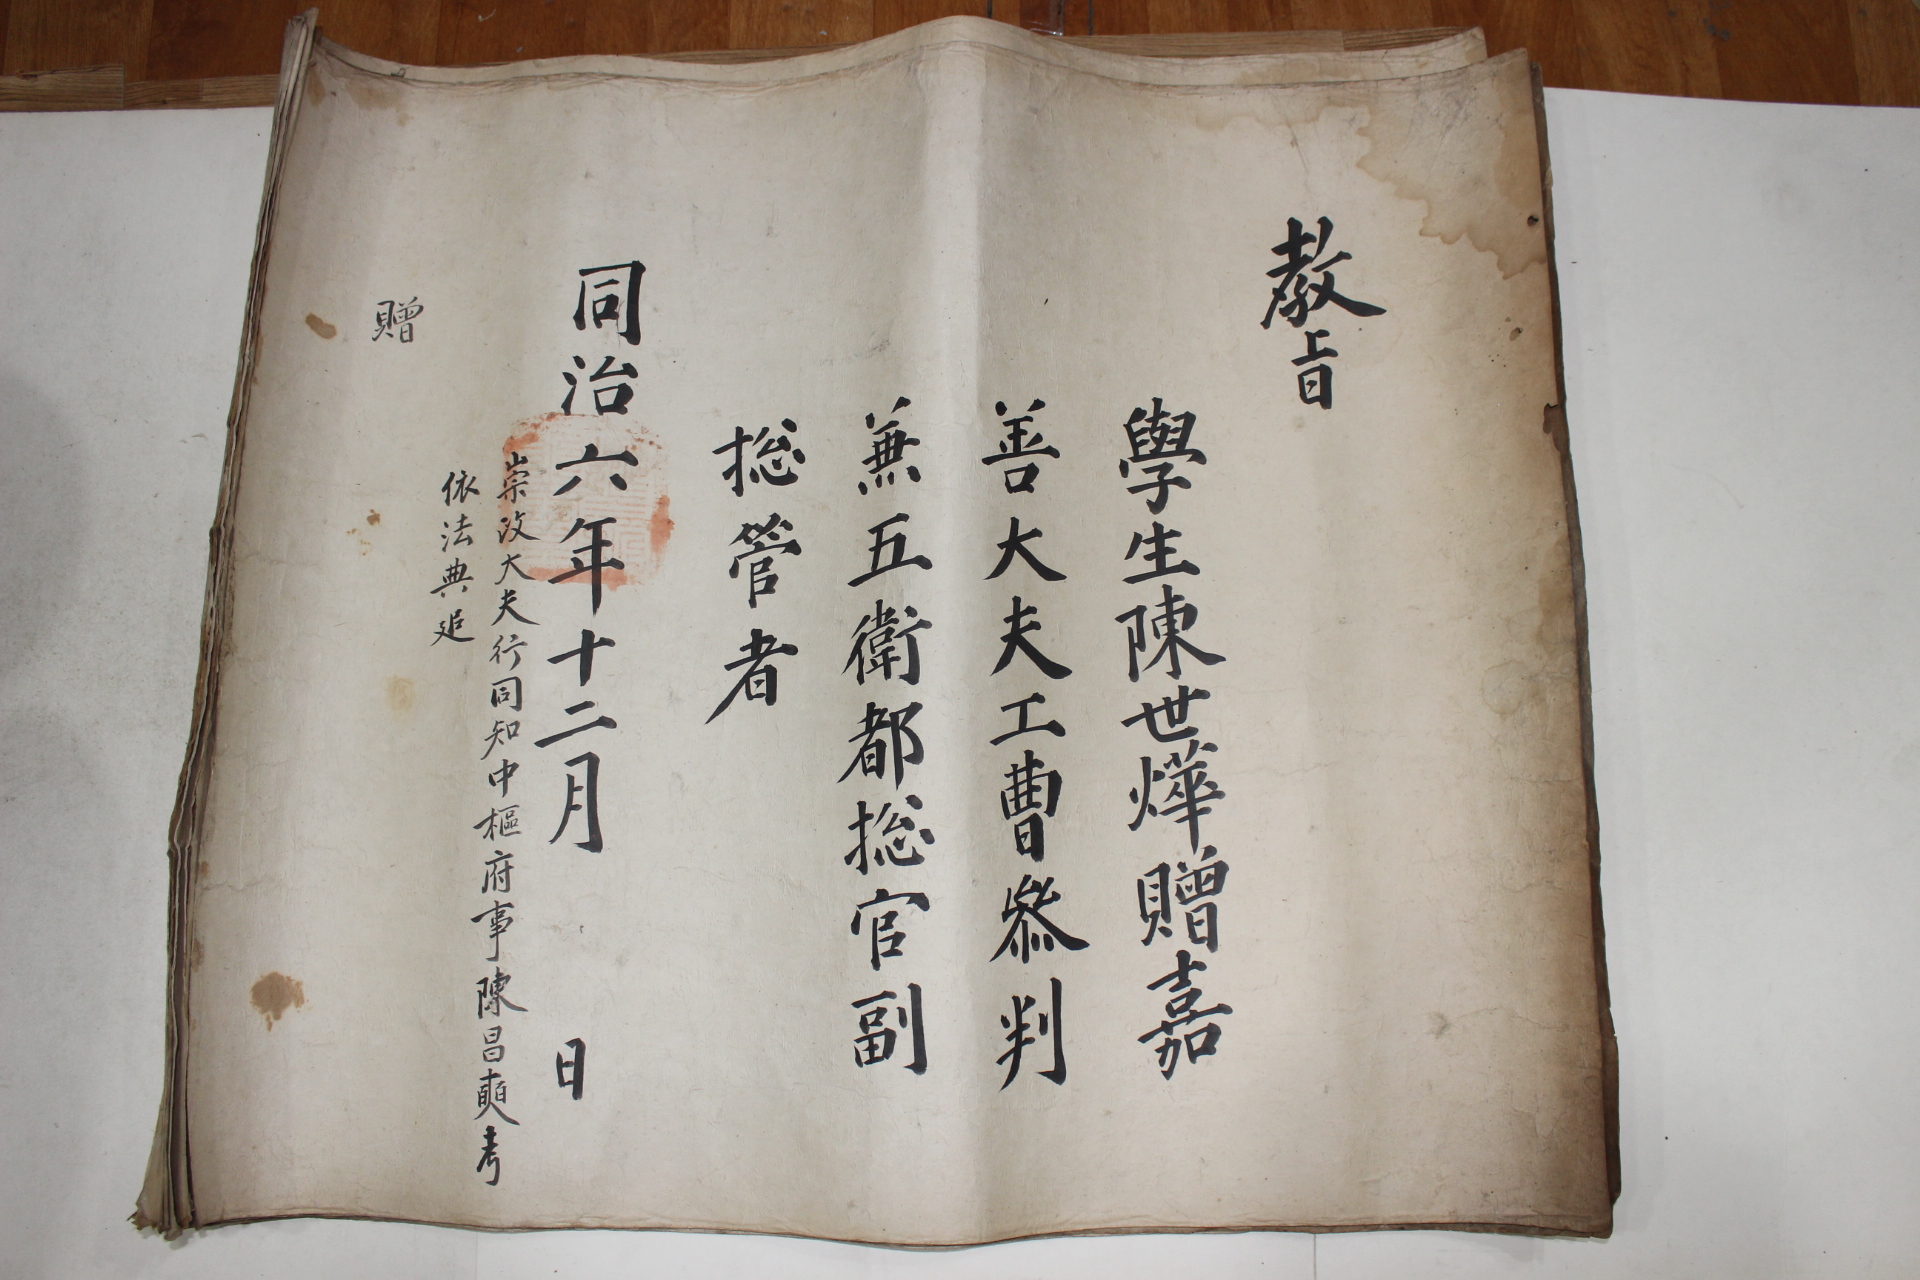 敎旨
學生陳世燁贈嘉
善大夫工曹叅判
兼五衛都摠官副
摠管者
同治六年十二月 日
崇政大夫行同知中樞府事陳昌奭考
依法典追
贈